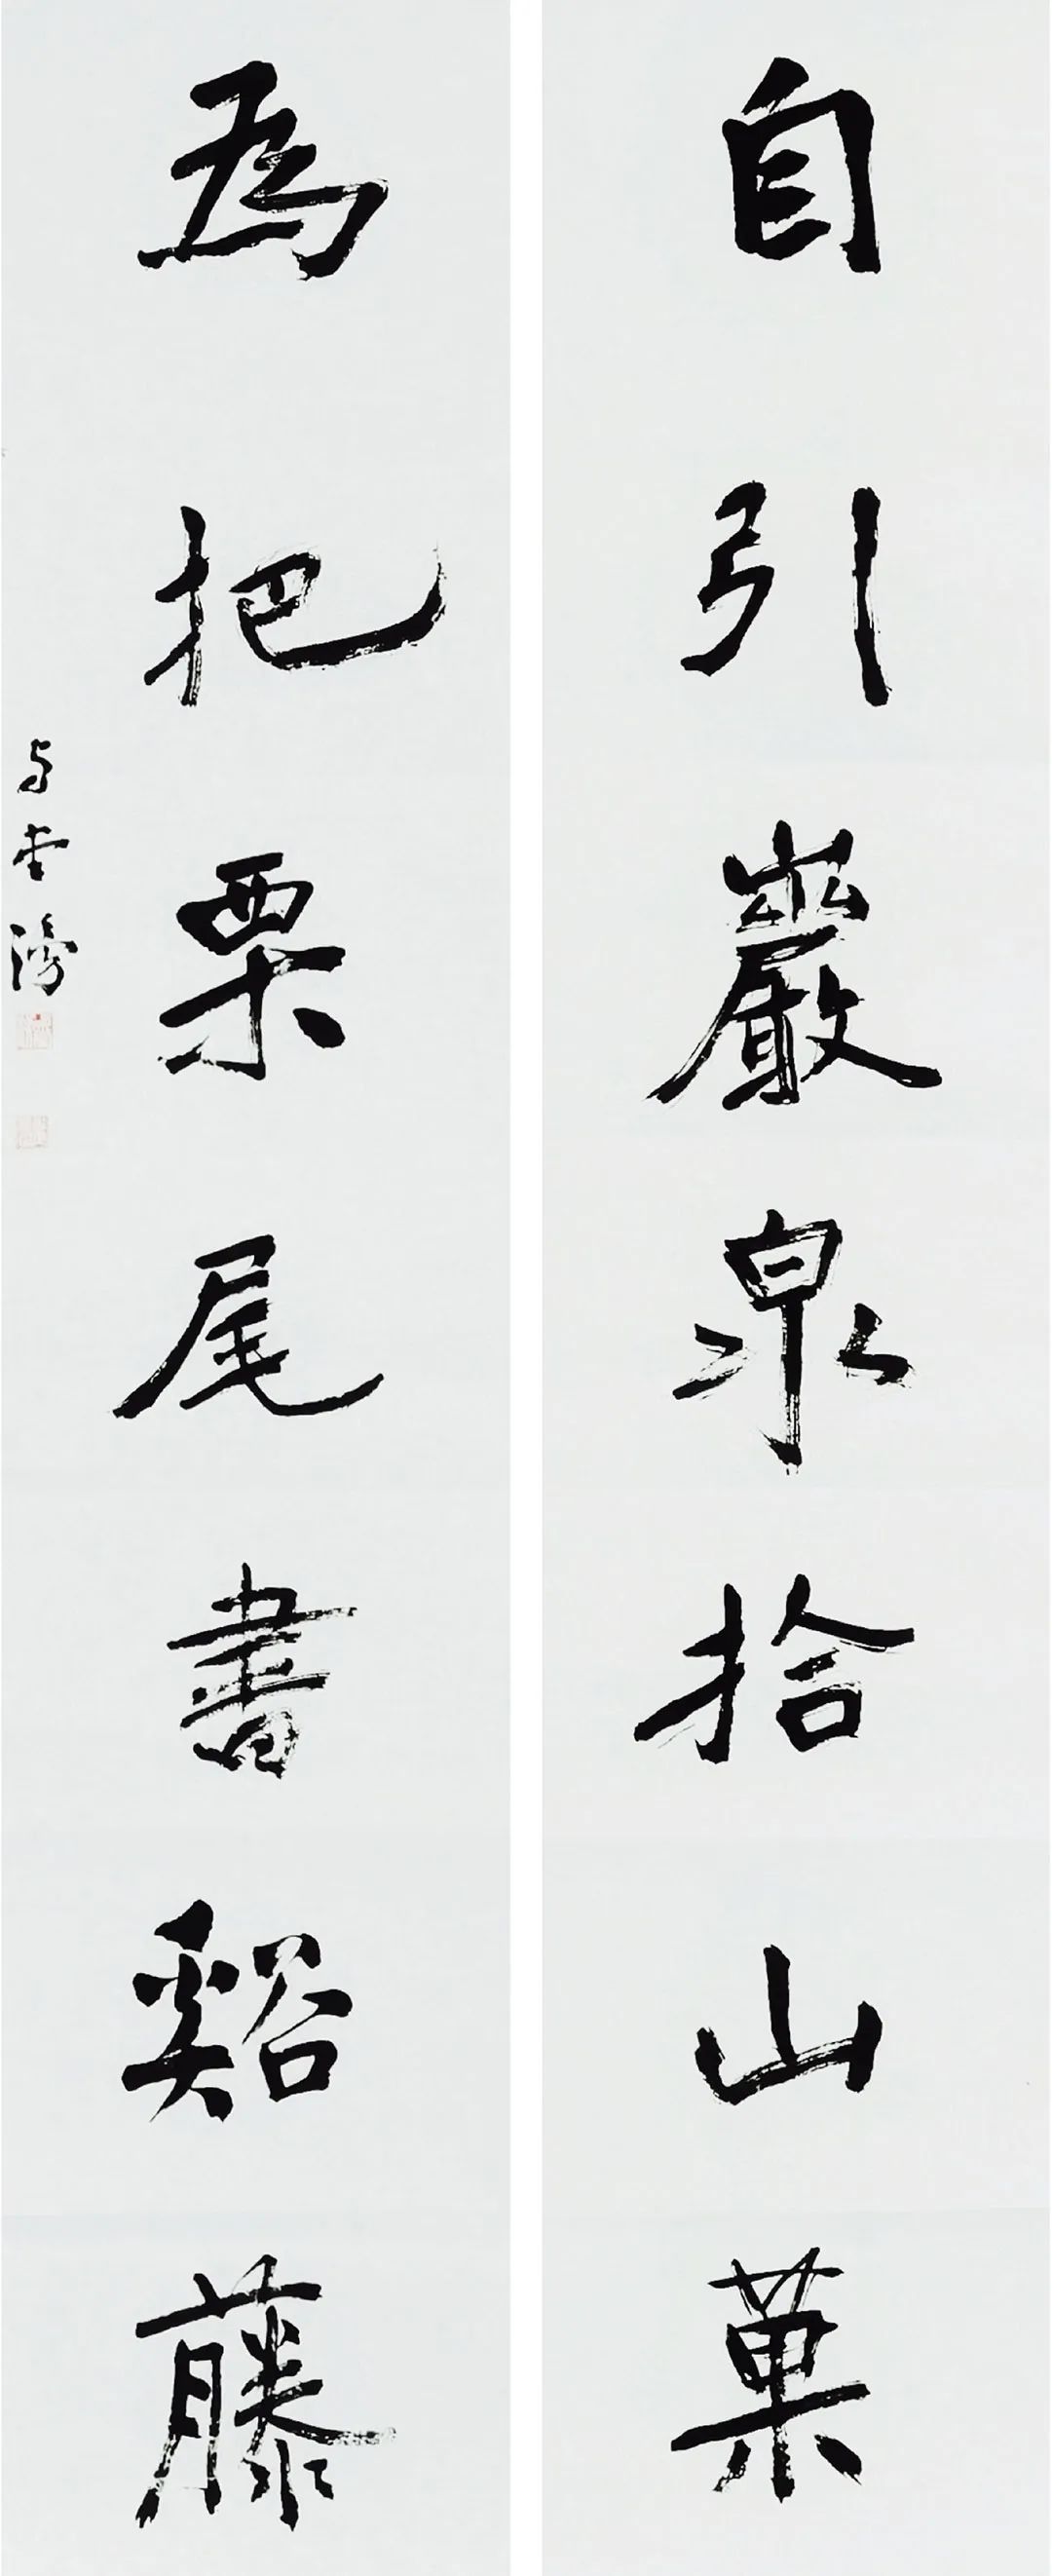 自引巖泉拾山菓
為把栗尾書谿藤